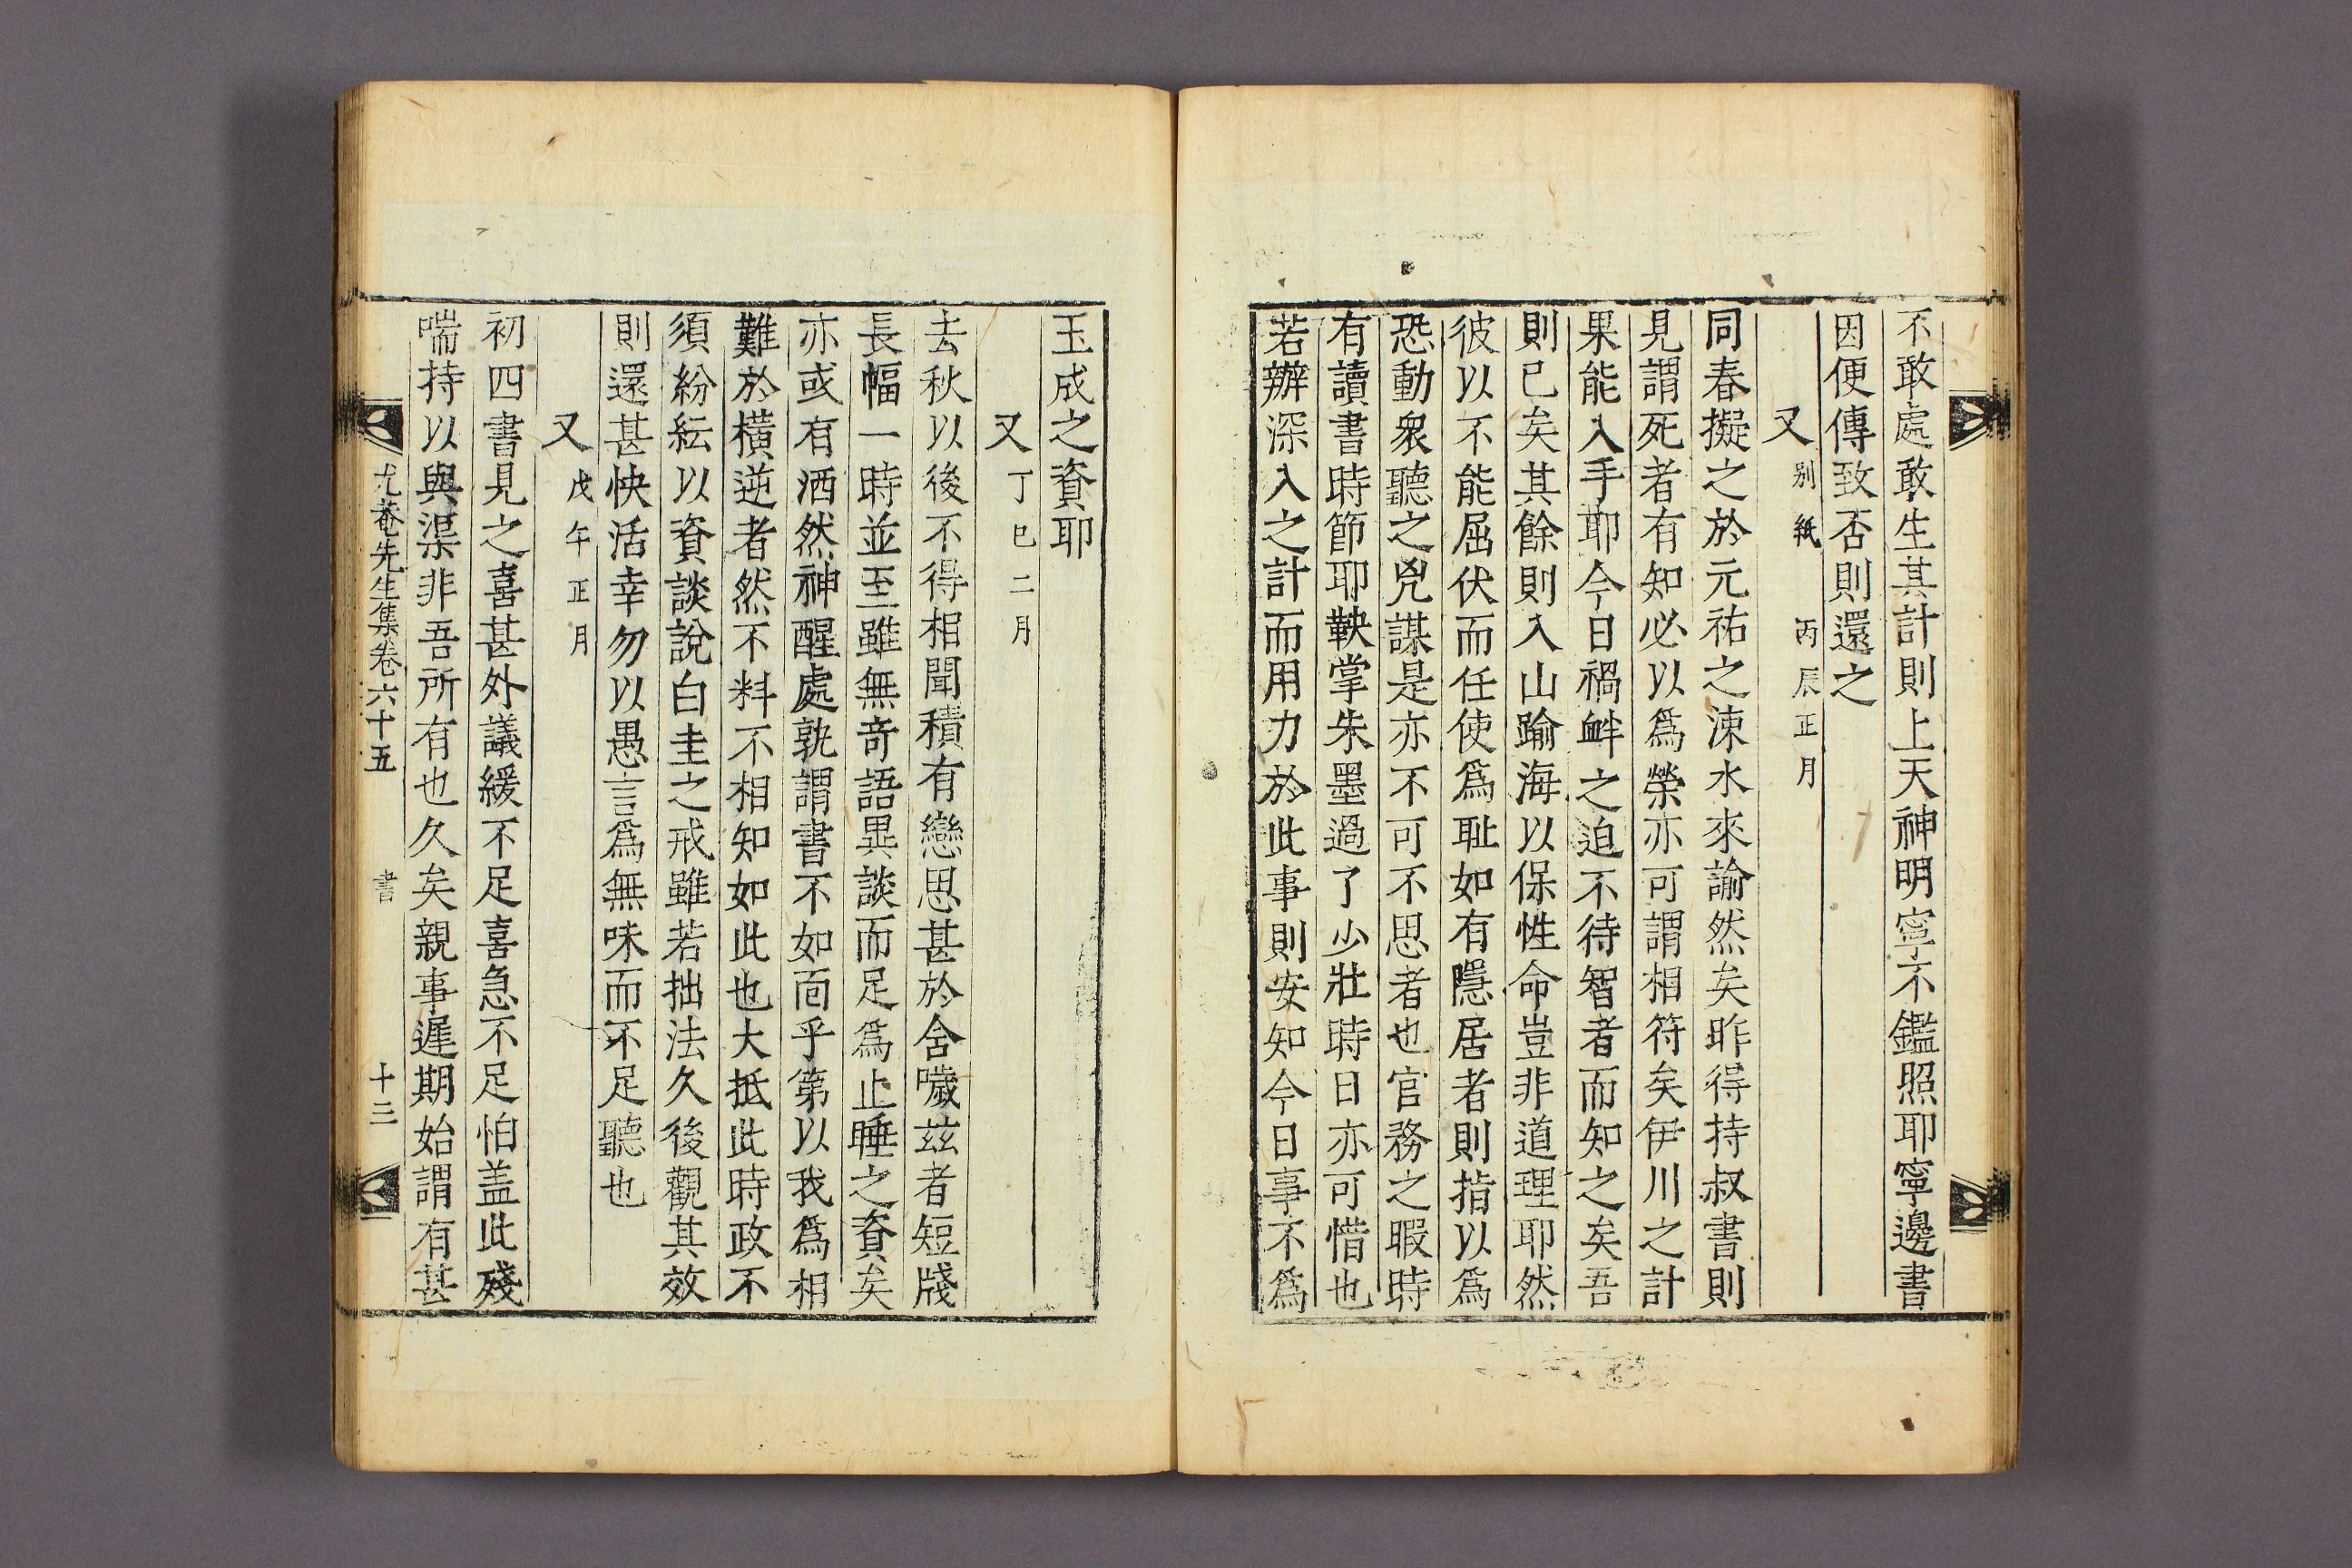 不敢處敢生其計則上天神明寧不鑑照耶寧邊書
因便傳致否則還之
又 別紙 丙辰正月
同春擬之於元祐之涑水來諭然矣昨得持叔書則
見謂死者有知必以爲榮亦可謂相符矣伊川之計
果能入手耶今日禍衅之迫不待智者而知之矣吾
則已矣其餘則入山踰海以保性命豈非道理耶然
彼以不能屈伏而任使爲耻如有隱居者則指以爲
恐動衆聽之兇謀是亦不可不思者也官務之暇時
有讀書時節耶鞅掌朱墨過了少壯時日亦可惜也
若辦深入之計而用力於此事則安知今日事不爲
玉成之資耶
又 丁巳二月
去秋以後不得相聞積有戀思甚於舍噦玆者短牋
長幅一時並至雖無奇語異談而足爲止睡之資矣
亦或有洒然神醒處孰謂書不如面乎第以我爲相
難於橫逆者然不料不相知如此也大抵此時政不
須紛紜以資談說白圭之戒雖若拙法久後觀其效
則還甚快活幸勿以愚言爲無味而不足聽也
又 戊午正月
初四書見之喜甚外議緩不足喜急不足怕盖此殘
喘持以與渠非吾所有也久矣親事遲期始謂有甚
尤菴先生集卷六十五 書 十三